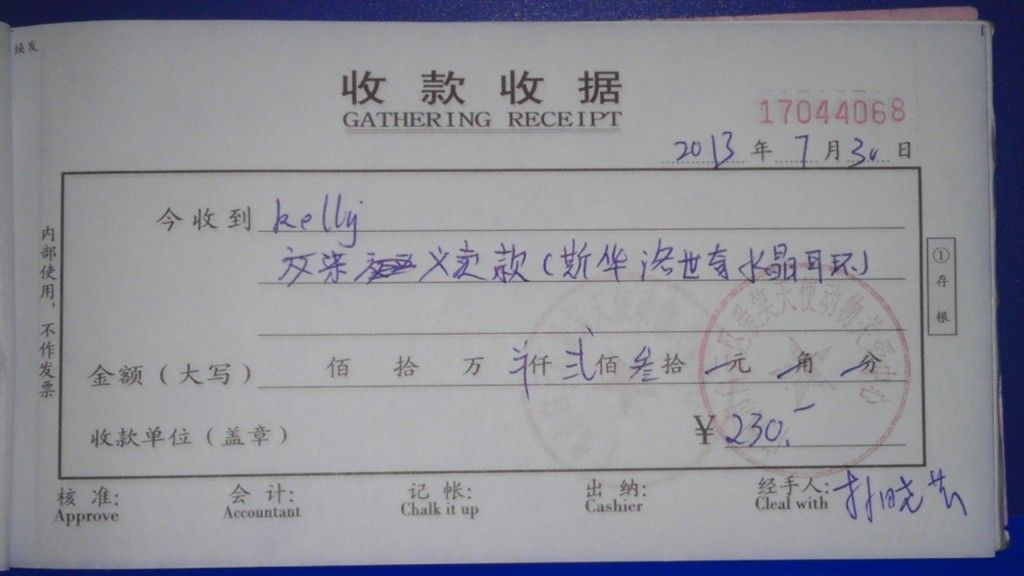 焕发
收款收据
GATHERING RECEIPT
17044068
2013 年 7 月 30 日
今收到 kelly
义卖款(斯华洛世奇水晶耳环)
金额(大写) 佰 拾 万 仟 贰 佰 叁 拾 元 角 分
收款单位(盖章) ¥ 230.-
内部使用,不作发票
①存根
核准: 会计: 记帐: 出纳: 经手人:
Approve Accountant Chalk it up Cashier Cleal with